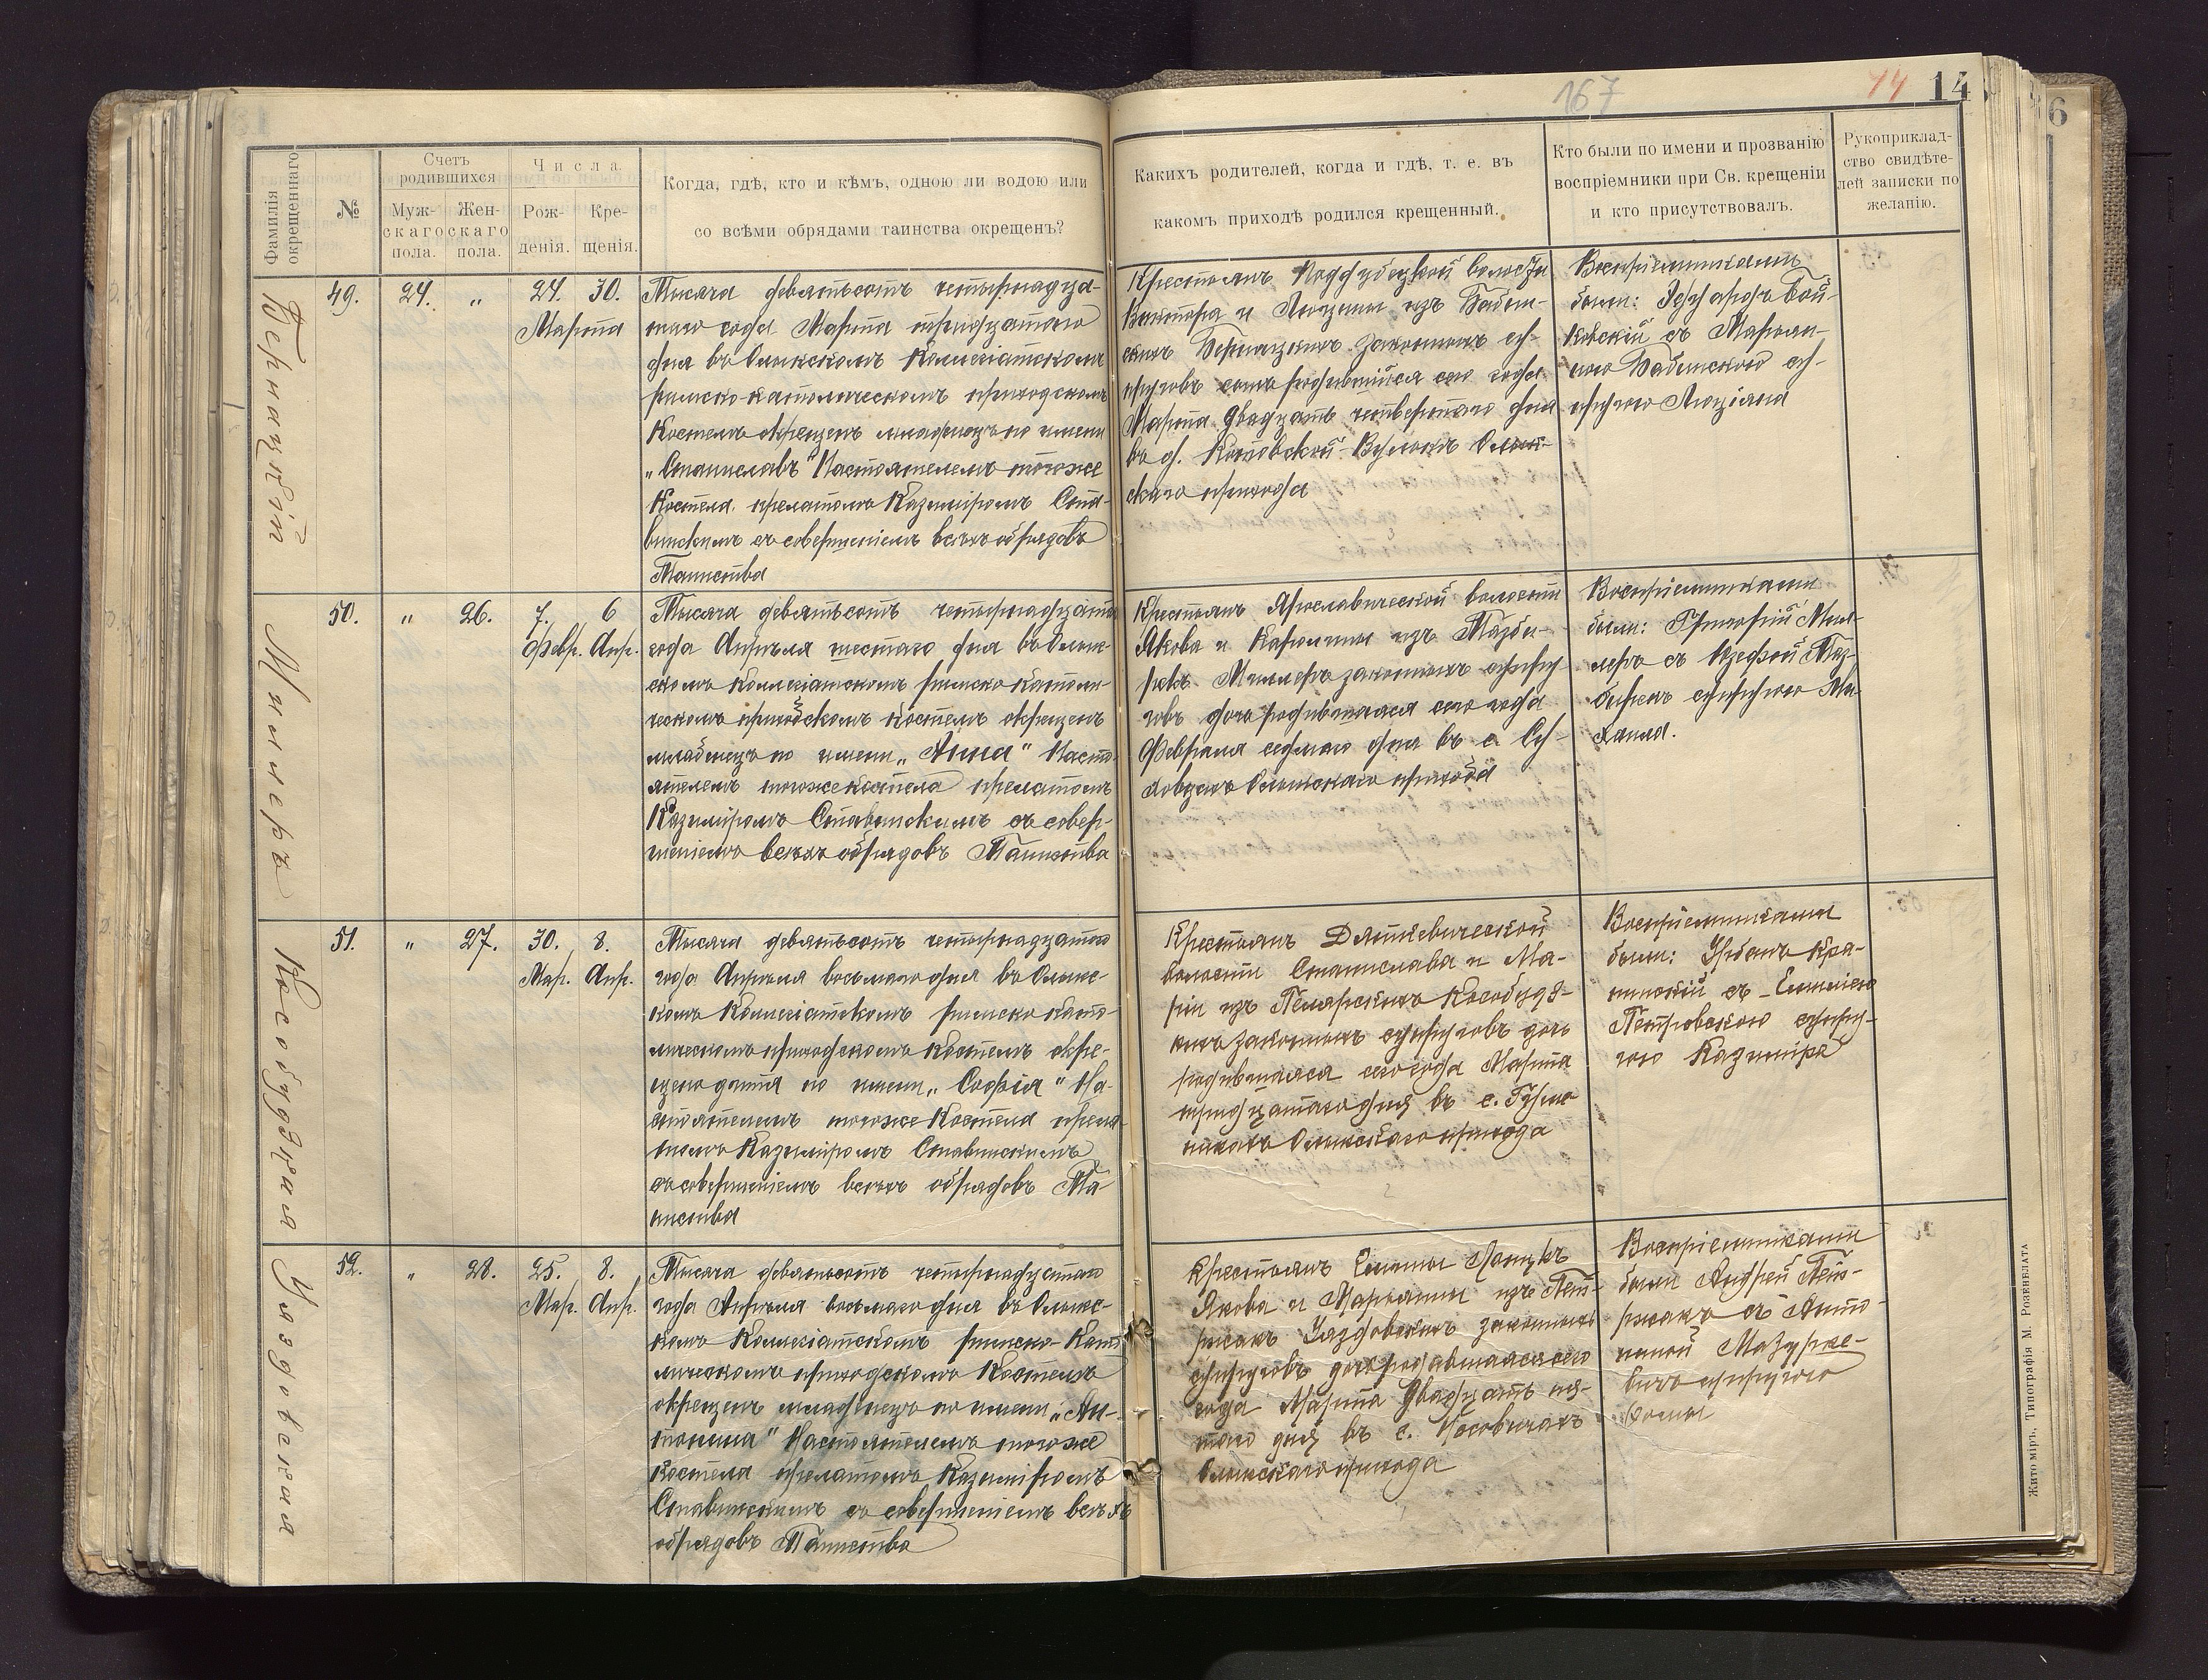 167
14
14
6
Фамилія окрещеннаго
№
Счетъ родившихся
Муж-
скаго
пола.
Жен-
скаго
пола.
Числа.
Рож-
денія.
Кре-
щенія.
Когда, гдѣ, кто и кѣмъ, одною ли водою или
со всѣми обрядами таинства окрещенъ?
Какихъ родителей, когда и гдѣ, т. е. въ
какомъ приходѣ родился крещенный.
Кто были по имени и прозванію
воспріемники при Св. крещеніи
и кто присутствовалъ.
Рукоприклад-
ство свидѣте-
лей записки по
желанію.
Бернацкій
49. 24. „ 24. 30.
Марта
Тысяча девятьсотъ четырнадца-
таго года Марта тридцатого
дня въ Олыкскомъ Коллегіатскомъ
римско-католическомъ приходскомъ
Костелѣ окрещенъ младенецъ по имени
„Станиславъ" Настоятелемъ тогоже
Костела прелатомъ Казиміромъ Ста-
винскимъ съ совершеніемъ всѣхъ обрядовъ
Таинства
Крестьянъ Поддубецкой волости
Виктора и Люціи изъ Бабин-
скихъ Бернацкихъ законныхъ су-
пруговъ сынъ родившійся сего года
Марта двадцать четвертаго дня
въ д. Котовской-Вулькѣ Олык-
скаго прихода
Воспріемниками
были: Эдуардъ Вой-
ковскій съ Марьян-
ною Бабинскою су-
пругою Люціяна
Миллеръ
50. „ 26. 7. 6
Февр. Апр.
Тысяча девятьсотъ четырнадцатаго
года Апрѣля шестаго дня въ Олык-
скомъ Коллегіатскомъ римско католи-
ческомъ приходскомъ Костелѣ окрещенъ
младенецъ по имени „Анна" Насто-
ятелемъ тогоже костела прелатомъ
Казиміромъ Ставинскимъ съ совер-
шеніемъ всѣхъ обрядовъ Таинства
Крестьянъ Ярославической волости
Якова и Каролины изъ Тазби-
ровъ Миллеръ законныхъ супру-
говъ дочь родившаяся сего года
Февраля седьмаго дня въ с.
Олыкскаго прихода
Воспріемниками
были: Григорій Мил-
леръ съ Юзефой Таз-
биръ супругою Ми-
хаила.
Кособудзкая
51. „ 27. 30. 8.
Мар. Апр.
Тысяча девятьсотъ четырнадцатаго
года Апрѣля восьмаго дня въ Олыкс-
комъ Коллегіатскомъ римско като-
лическомъ приходскомъ Костелѣ окре-
щено дитя по имени „Софія" На-
стоятелемъ тогоже Костела прела-
томъ Казиміромъ Ставинскимъ
съ совершеніемъ всѣхъ обрядовъ Та-
инства
Крестьянъ Дяткевической
волости Станислава и Ма-
ріи изъ Пекарскихъ Кособудз-
кихъ законныхъ супруговъ дочь
родившаяся сего года Марта
тридцатаго дня въ с.
Олыкскаго прихода
Воспріемниками
были: Урбанъ Кра-
шинскій съ Емиліею
Петровскою супру-
гою Казиміра
Уяздовская
52. „ 28. 25. 8.
Мар. Апр.
Тысяча девятьсотъ четырнадцатаго
года Апрѣля восьмаго дня въ Олыкс-
комъ Коллегіатскомъ римско-като-
лическомъ приходскомъ Костелѣ
окрещенъ младенецъ по имени „Ан-
тонина" Настоятелемъ тогоже
Костела прелатомъ Казиміромъ
Ставинскимъ съ совершеніемъ всѣхъ
обрядовъ Таинства
Крестьянъ
Якова и Марьянны изъ Пет-
рысакъ Уяздовскихъ законныхъ
супруговъ дочь родившаяся сего
года Марта двадцать пя-
таго дня въ с. Носовичахъ
Олыкскаго прихода
Воспріемниками
были Андрей Пет-
рысакъ съ Анто-
ниной Мазурке-
вичъ супругою
Ѳомы
Житоміръ, Типографія М. Розенблата